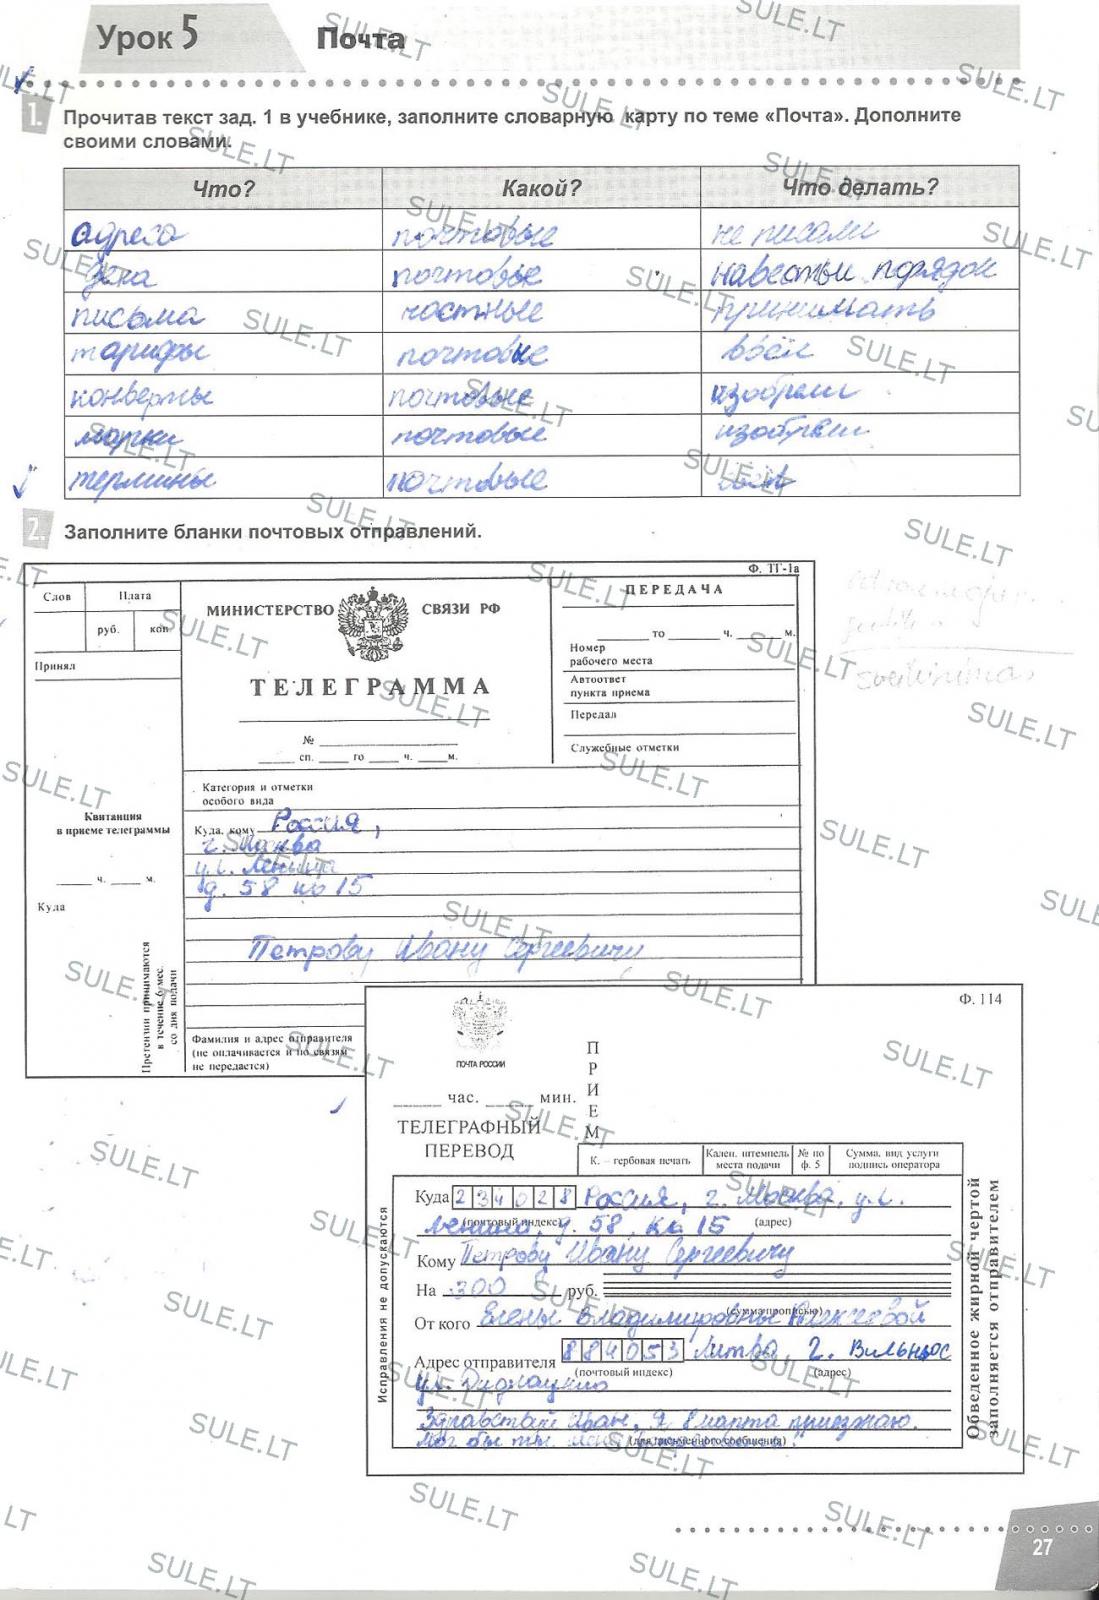 Урок 5 Почта
1. Прочитав текст зад. 1 в учебнике, заполните словарную карту по теме «Почта». Дополните
своими словами.
Что? Какой? Что делать?
адреса почтовые не писали
дела почтовые навести порядок
письма частные принимать
тарифы почтовые ввёл
конверты почтовые изобрели
марки почтовые изобрели
термины почтовые
2. Заполните бланки почтовых отправлений.
Ф. ТГ-1а
Слов Плата
руб. коп
Принял
МИНИСТЕРСТВО СВЯЗИ РФ
ТЕЛЕГРАММА
№
сп. го ч. м.
ПЕРЕДАЧА
го ч. м.
Номер
рабочего места
Автоответ
пункта приема
Передал
Служебные отметки
Категория и отметки
особого вида
Квитанция
в приеме телеграммы
ч. м.
Куда
Претензии принимаются
в течение 6 мес.
со дня подачи
Куда, кому Россия,
г. Москва
ул. Ленина
д. 58 кв 15
Петрову Ивану Сергеевичу
Фамилия и адрес отправителя
(не оплачивается и по связям
не передается)
Ф. 114
ПОЧТА РОССИИ
ПРИЕМ
час. мин.
ТЕЛЕГРАФНЫЙ
ПЕРЕВОД
К. – гербовая печать
Кален. штемпель
места подачи
№ по
ф. 5
Сумма, вид услуги
подпись оператора
Исправления не допускаются
Куда 234028 Россия, г. Москва, ул.
(почтовый индекс) (адрес)
Ленина, д. 58, кв 15
Кому Петрову Ивану Сергеевичу
На 300 руб.
(сумма прописью)
От кого Елены Владимировны Алексеевой
Адрес отправителя 884053 Литва, г. Вильнюс
(почтовый индекс) (адрес)
ул.
Здравствуй Иван, я 8 марта приезжаю.
Мог бы ты меня
(для письменного сообщения)
Обведенное жирной чертой
заполняется отправителем
27
SULE.LT